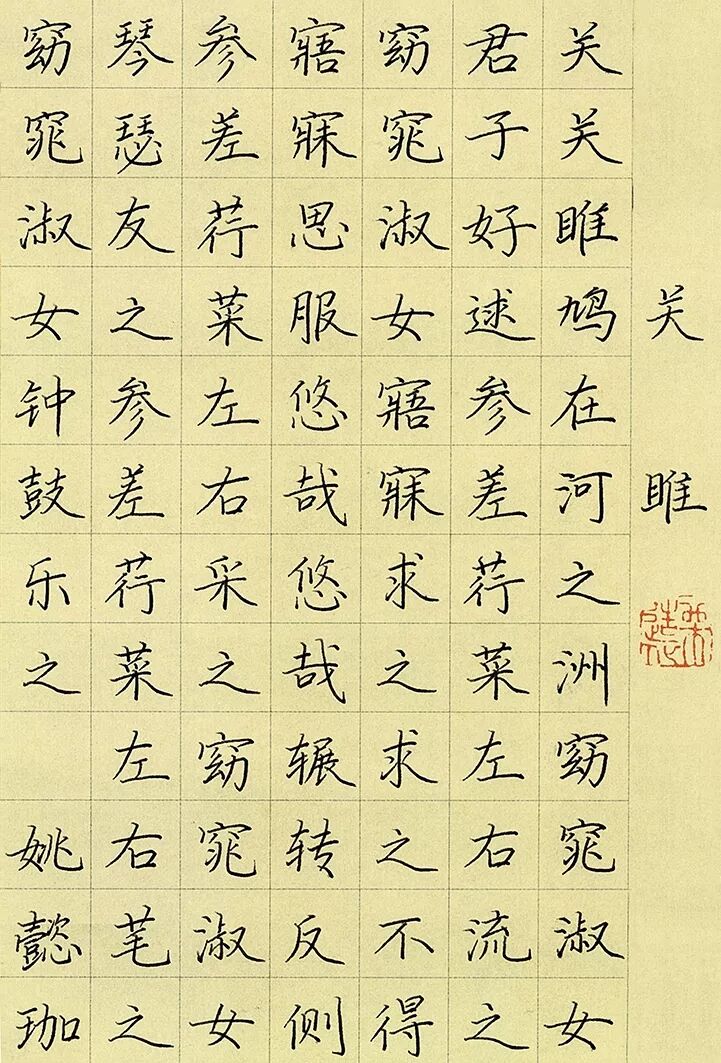 关雎
关关雎鸠在河之洲窈窕淑女
君子好逑参差荇菜左右流之
窈窕淑女寤寐求之求之不得
寤寐思服悠哉悠哉辗转反侧
参差荇菜左右采之窈窕淑女
琴瑟友之参差荇菜左右芼之
窈窕淑女钟鼓乐之 姚懿珈